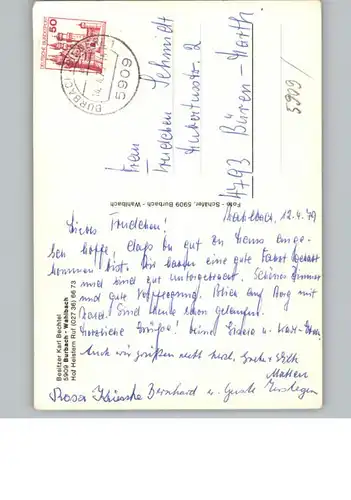 50
DEUTSCHE BUNDESPOST
BURBACH
5909
Frau
Trudchen Schmidt
Hubertusstr. 2
4793 Büren-Harth
5909/
Foto - Schäfer, 5909 Burbach - Wahlbach
Wahlbach, 12.4.79
Liebes Trudchen!
Ich hoffe, dass Du gut zu Hause ange-
kommen bist. Wir hatten eine gute Fahrt gehabt
und sind gut untergebracht. Schönes Zimmer
und gute Verpflegung. Blick auf Berg mit
Wald. Sind heute schon gelaufen.
Herzliche Grüße! Deine
Auch wir grüßen recht herzl.
Rosa Bernhard u.
Besitzer Karl Bechtel
5909 Burbach-Wahlbach
Hof Heistern Ruf (027 36) 66 73